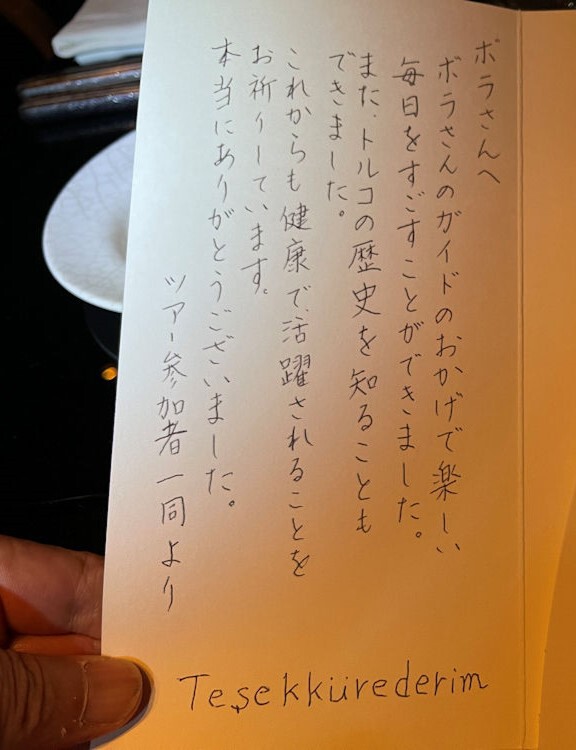 ボラさんへ
ボラさんのガイドのおかげで楽しい
毎日をすごすことができました。
また、トルコの歴史を知ることも
できました。
これからも健康で活躍されることを
お祈りしています。
本当にありがとうございました。
ツアー参加者一同より
Teşekkürederim